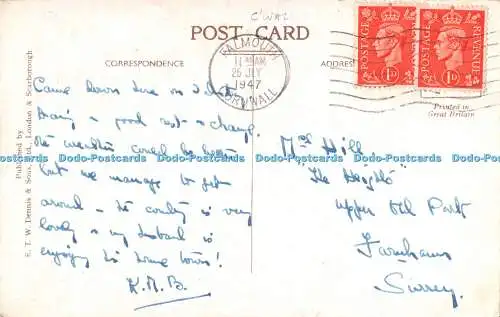 C'WAL
POST CARD
CORRESPONDENCE
ADDRESS
FALMOUTH
11 AM
25 JLY
1947
CORNWALL
POSTAGE REVENUE
1D
POSTAGE REVENUE
1D
Printed in
Great Britain
Published by
E. T. W. Dennis & Sons, Ltd., London & Scarborough
Came down here on
Having a good rest & change.
The weather could be better
but we manage to get
around – the country is very
lovely & my husband is
enjoying his home town!
K.M.B.
Mrs Hill
"The Heights"
Upper Old Park
Farnham
Surrey.
Dodo-Postcards Dodo-Postcards Dodo-Postcards Dodo-Postcards Dodo-Postcards